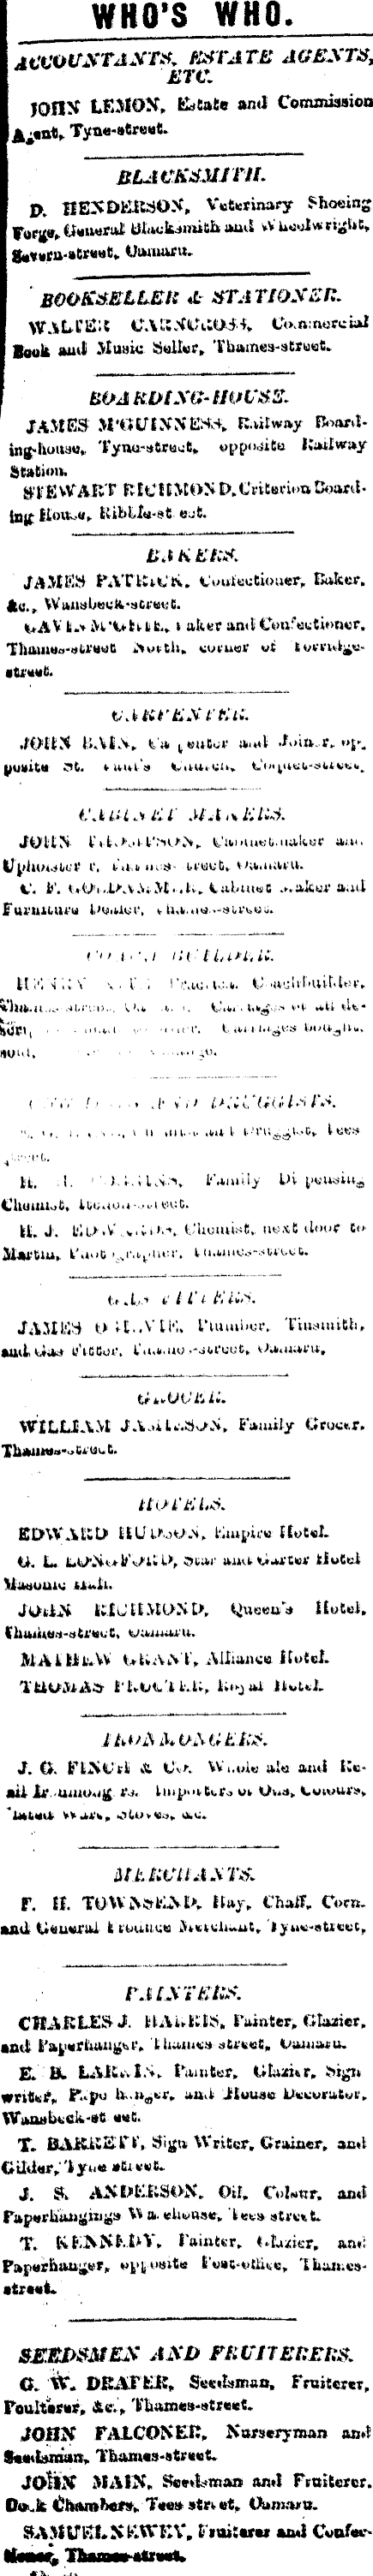 WHO'S WHO.
ACCOUNTANTS, ESTATE AGENTS,
ETC.
JOHN LEMON, Estate and Commission
Agent, Tyne-street.
BLACKSMITH.
D. HENDERSON, Veterinary Shoeing
Forge, General Blacksmith and Wheelwright,
Severn-street, Oamaru.
BOOKSELLER & STATIONER.
WALTER CARNCROSS, Commercial
Book and Music Seller, Thames-street.
BOARDING-HOUSE.
JAMES M'GUINNESS, Railway Board-
ing-house, Tyne-street, opposite Railway
Station.
STEWART RICHMOND, Criterion Board-
ing House, Ribble-street.
BAKERS.
JAMES PATRICK, Confectioner, Baker,
&c., Wansbeck-street.
Baker and Confectioner,
Thames-street North, corner of Torridge-
street.
CARPENTER.
JOHN BAIN, Carpenter and Joiner, op-
posite St. Paul's Church, Coquet-street.
CABINET MAKERS.
JOHN THOMPSON, Cabinetmaker and
Upholsterer, Thames-street, Oamaru.
C. F. Cabinet Maker and
Furniture Dealer, Thames-street.
COACH BUILDER.
HENRY Practical Coachbuilder,
Carriages of all de-
Carriages bought,
sold,
AND DRUGGISTS.
Druggist, Tees
street.
H. Family Dispensing
Chemist, street.
H. J. EDWARDS, Chemist, next door to
Martin, Photographer, Thames-street.
GAS FITTERS.
JAMES OGILVIE, Plumber, Tinsmith,
and Gas Fitter, Thames-street, Oamaru,
GROCER.
WILLIAM JAMIESON, Family Grocer,
Thames-street.
HOTELS.
EDWARD HUDSON, Empire Hotel.
G. L. LONGFORD, Star and Garter Hotel
Masonic Hall.
JOHN RICHMOND, Queen's Hotel,
Thames-street, Oamaru.
MATHEW GRANT, Alliance Hotel.
THOMAS PROCTER, Royal Hotel.
IRONMONGERS.
J. G. FINCH & Co. Wholesale and Re-
ail Ironmongers. Importers of Oils, Colours,
lated Ware, Stoves, &c.
MERCHANTS.
F. H. TOWNSEND, Hay, Chaff, Corn,
and General Produce Merchant, Tyne-street,
PAINTERS.
CHARLES J. HARRIS, Painter, Glazier,
and Paperhanger, Thames street, Oamaru.
E. B. LARKINS, Painter, Glazier, Sign
writer, Paperhanger, and House Decorator,
Wansbeck-street.
T. BARRETT, Sign Writer, Grainer, and
Gilder, Tyne street.
J. S. ANDERSON, Oil, Colour, and
Paperhangings Warehouse, Tees street.
T. KENNEDY, Painter, Glazier, and
Paperhanger, opposite Post-office, Thames-
street.
SEEDSMEN AND FRUITERERS.
G. W. DRAPER, Seedsman, Fruiterer,
Poulterer, &c., Thames-street.
JOHN FALCONER, Nurseryman and
Seedsman, Thames-street.
JOHN MAIN, Seedsman and Fruiterer,
Dock Chambers, Tees street, Oamaru.
SAMUEL NEWEY, Fruiterer and Confec-
tioner, Thames-street.